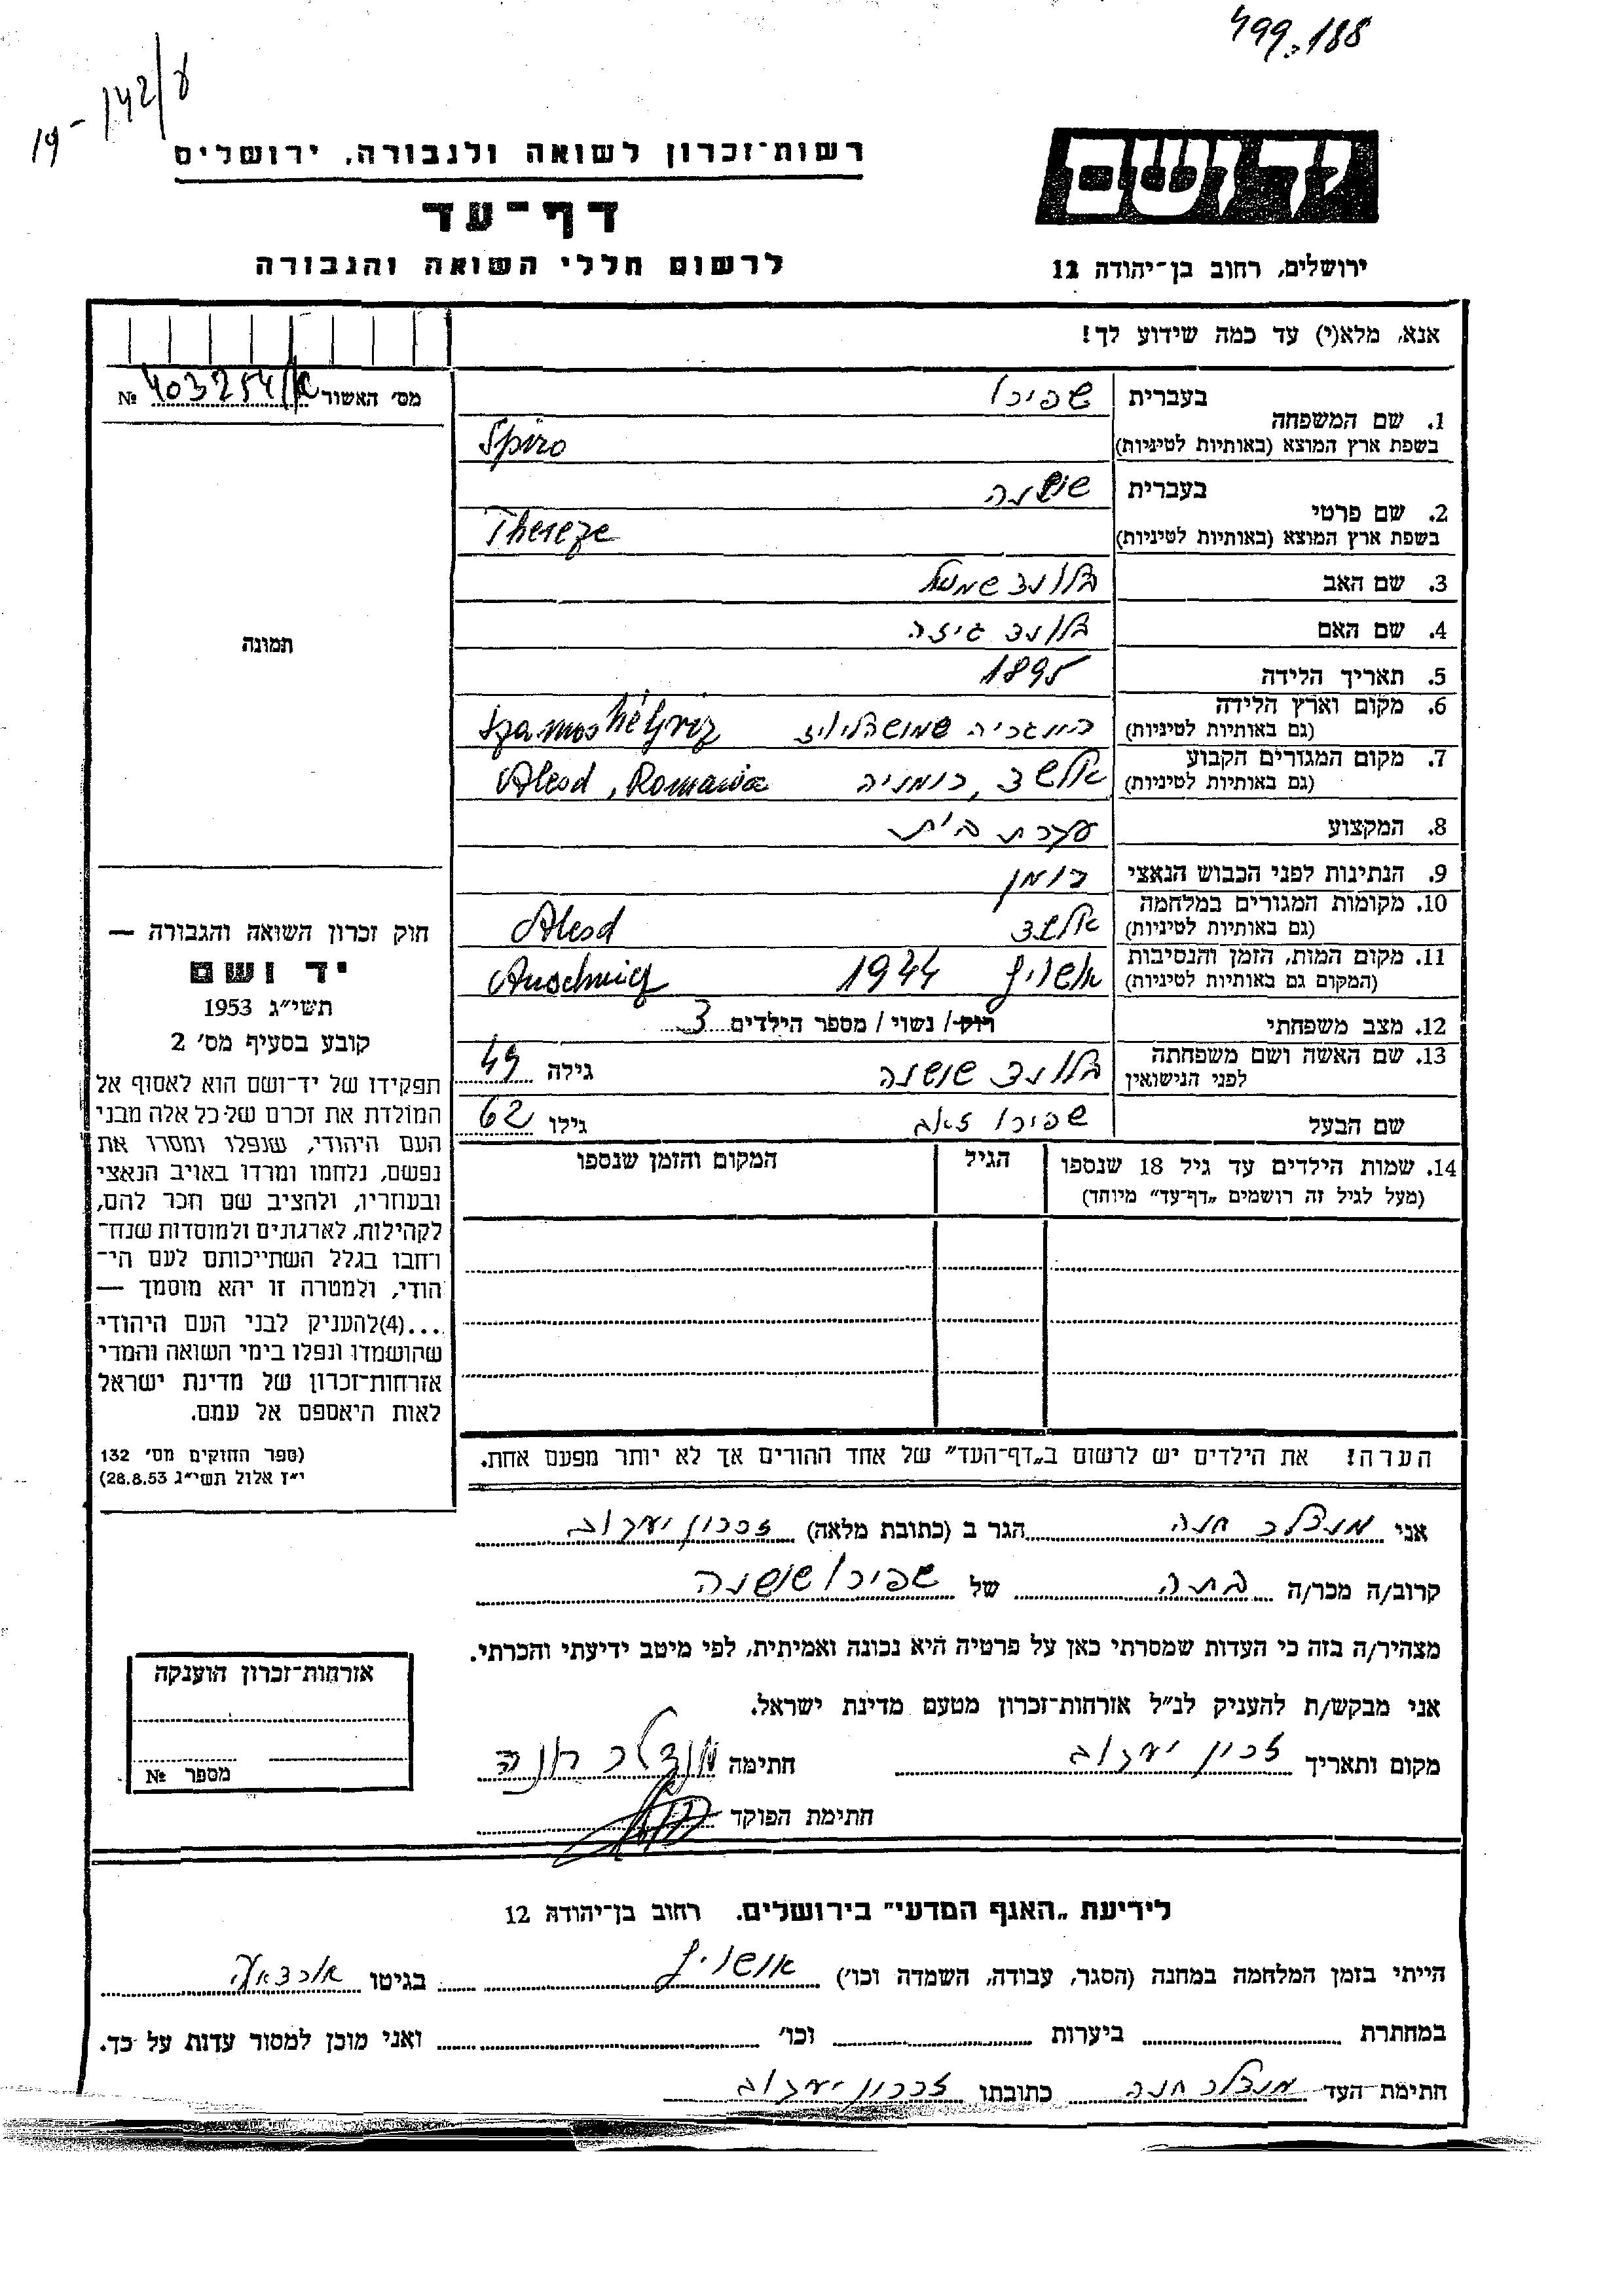 499.188
19-142/8
יד ושם
רשות־זכרון לשואה ולגבורה, ירושלים
דף־עד
ירושלים, רחוב בן־יהודה 12
לרשום חללי השואה והגבורה
אנא, מלא(י) עד כמה שידוע לך!
מס׳ האשור 403254 №
תמונה
1. שם המשפחה
בעברית שפירו
בשפת ארץ המוצא (באותיות לטיניות) Spiro
2. שם פרטי
בעברית שושנה
בשפת ארץ המוצא (באותיות לטיניות) Thereze
3. שם האב בלונד שמואל
4. שם האם בלונד גיזה
5. תאריך הלידה 1895
6. מקום וארץ הלידה
(גם באותיות לטיניות) Szamoshélyriz
7. מקום המגורים הקבוע
(גם באותיות לטיניות) אלשד, רומניה Alesd, Romania
8. המקצוע עקרת בית
9. הנתינות לפני הכבוש הנאצי רומן
10. מקומות המגורים במלחמה
(גם באותיות לטיניות) אלשד Alesd
11. מקום המות, הזמן והנסיבות
(המקום גם באותיות לטיניות) אושויץ 1944 Auschwicz
12. מצב משפחתי רוק / נשוי / מספר הילדים 3
13. שם האשה ושם משפחתה
לפני הנישואין בלונד שושנה גילה 49
שם הבעל שפירו זאב גילו 62
14. שמות הילדים עד גיל 18 שנספו
(מעל לגיל זה רושמים „דף־עד״ מיוחד)
הגיל
המקום והזמן שנספו
הערה! את הילדים יש לרשום ב„דף־העד״ של אחד ההורים אך לא יותר מפעם אחת.
חוק זכרון השואה והגבורה —
יד ושם
תשי״ג 1953
קובע בסעיף מס׳ 2
תפקידו של יד־ושם הוא לאסוף אל
המולדת את זכרם של כל אלה מבני
העם היהודי, שנפלו ומסרו את
נפשם, נלחמו ומרדו באויב הנאצי
ובעוזריו, ולהציב שם וזכר להם,
לקהילות, לארגונים ולמוסדות שנח־
רחבו בגלל השתייכותם לעם הי־
הודי, ולמטרה זו יהא מוסמך —
...(4)להעניק לבני העם היהודי
שהושמדו ונפלו בימי השואה והמרי
אזרחות־זכרון של מדינת ישראל
לאות היאספם אל עמם.
(ספר החוקים מס׳ 132
י״ז אלול תשי״ג 28.8.53)
אני מנדלר חנה הגר ב (כתובת מלאה) זכרון יעקוב
קרוב/ה מכר/ה בתה של שפירו שושנה
מצהיר/ה בזה כי העדות שמסרתי כאן על פרטיה היא נכונה ואמיתית, לפי מיטב ידיעתי והכרתי.
אני מבקש/ת להעניק לנ״ל אזרחות־זכרון מטעם מדינת ישראל.
מקום ותאריך זכרון יעקוב חתימה מנדלר חנה
חתימת הפוקד
אזרחות־זכרון הוענקה
מספר №
לידיעת „האגף המדעי״ בירושלים. רחוב בן־יהודה 12
הייתי בזמן המלחמה במחנה (הסגר, עבודה, השמדה וכו׳) אושויץ בגיטו
במחתרת ביערות וכו׳ ואני מוכן למסור עדות על כך.
חתימת העד מנדלר חנה כתובתו זכרון יעקוב